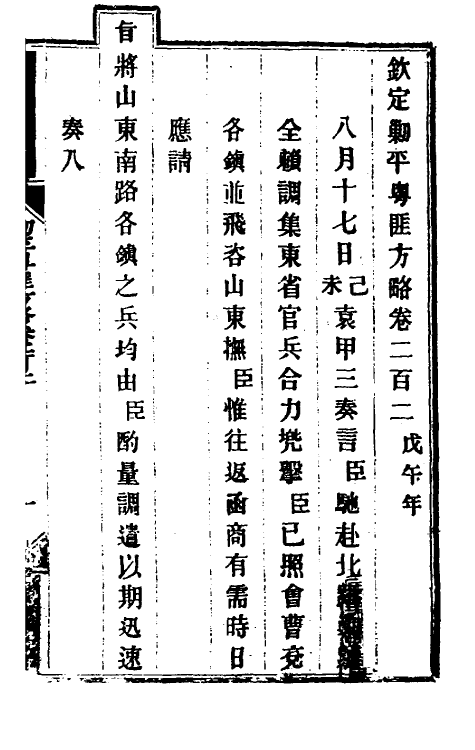 欽定勦平粵匪方略卷二百二 戊午年
八月十七日己未袁甲三奏言臣馳赴北
全賴調集東省官兵合力兜擊臣已照會曹兗
各鎮並飛咨山東撫臣惟往返函商有需時日
應請
旨將山東南路各鎮之兵均由臣酌量調遣以期迅速
奏入